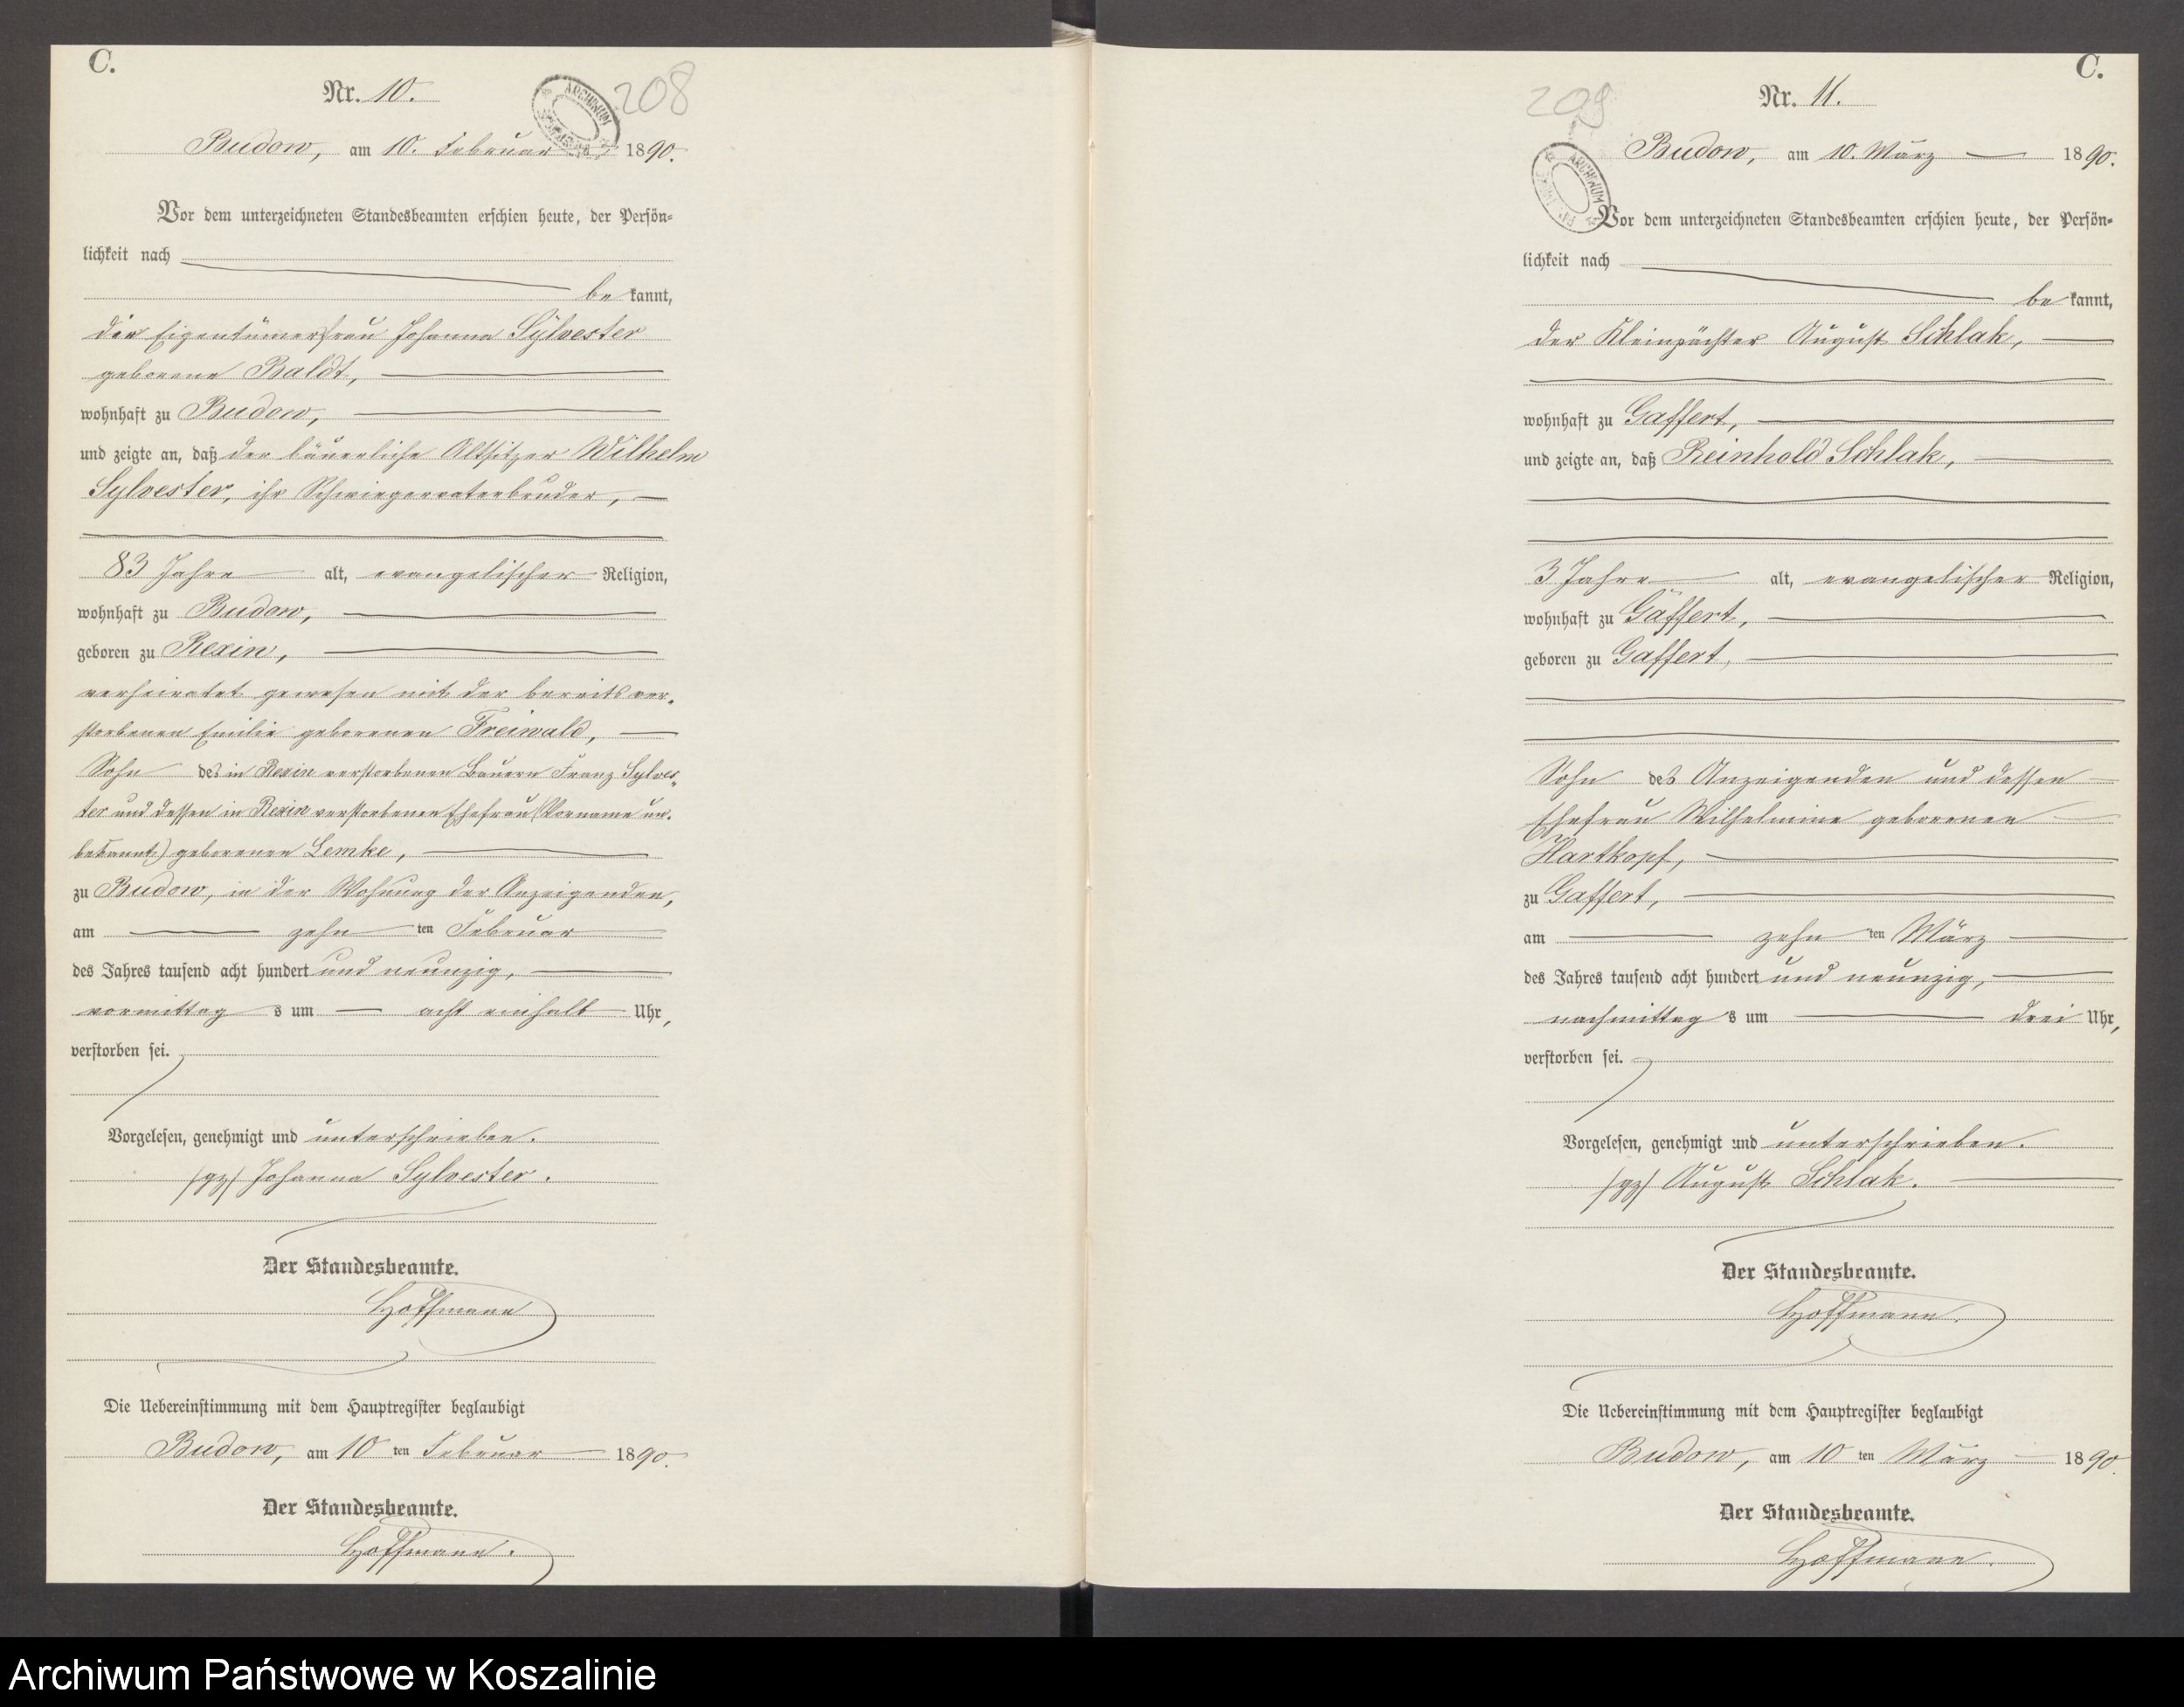 C.
Nr. 10.
208
ARCHIWUM
Budow, am 10. Februar 1890.
Vor dem unterzeichneten Standesbeamten erschien heute, der Persön=
lichkeit nach
be kannt,
die Eigentümerfrau Johanna Sylvester
geborene Baldt,
wohnhaft zu Budow,
und zeigte an, daß der bäuerliche Altsitzer Wilhelm
Sylvester, ihr Schwiegervaterbruder,
83 Jahre alt, evangelischer Religion,
wohnhaft zu Budow,
geboren zu Rexin,
verheiratet gewesen mit der bereits ver=
storbenen Emilie geborenen Freiwald,
Sohn des in Rexin verstorbenen Bauern Franz Sylves=
ter und dessen in Rexin verstorbenen Ehefrau (Vorname un=
bekannt) geborenen Lemke,
zu Budow, in der Wohnung der Anzeigenden,
am zehn ten Februar
des Jahres tausend acht hundert und neunzig,
vormittag s um acht einhalb Uhr,
verstorben sei.
Vorgelesen, genehmigt und unterschrieben.
/gz/ Johanna Sylvester.
Der Standesbeamte.
Hoffmann
Die Uebereinstimmung mit dem Hauptregister beglaubigt
Budow, am 10 ten Februar 1890.
Der Standesbeamte.
Hoffmann.
C.
Nr. 11.
209
ARCHIWUM
Budow, am 10. März 1890.
Vor dem unterzeichneten Standesbeamten erschien heute, der Persön=
lichkeit nach
be kannt,
der Kleinpächter August Schlak,
wohnhaft zu Gaffert,
und zeigte an, daß Reinhold Schlak,
3 Jahre alt, evangelischer Religion,
wohnhaft zu Gaffert,
geboren zu Gaffert,
Sohn des Anzeigenden und dessen
Ehefrau Wilhelmine geborenen
Hartkopf,
zu Gaffert,
am zehn ten März
des Jahres tausend acht hundert und neunzig,
nachmittag s um drei Uhr,
verstorben sei.
Vorgelesen, genehmigt und unterschrieben.
/gz/ August Schlak.
Der Standesbeamte.
Hoffmann.
Die Uebereinstimmung mit dem Hauptregister beglaubigt
Budow, am 10 ten März 1890.
Der Standesbeamte.
Hoffmann.
Archiwum Państwowe w Koszalinie